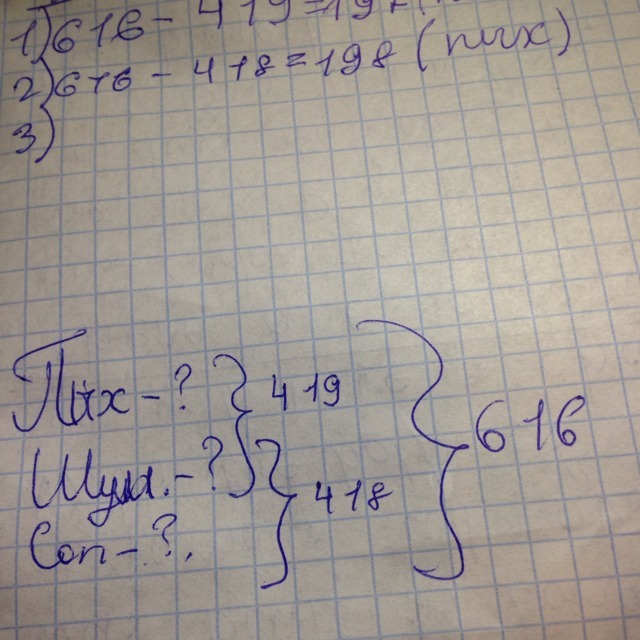 1) 616 - 419 = 197
2) 616 - 418 = 198 (пих)
3)
Пих - ? 419
616
Шум. - ? 418
Соп - ?.